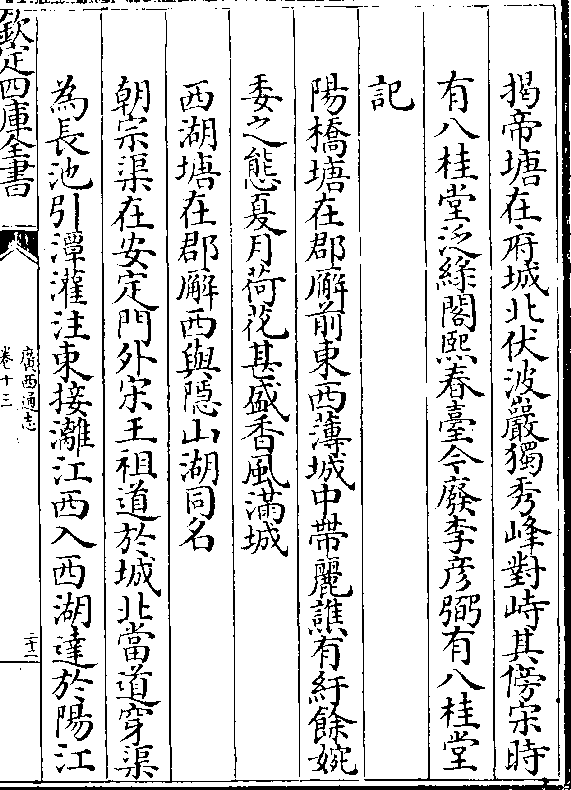 揭帝塘在府城北伏波巖獨秀峰對峙其傍宋時
有八桂堂泛綠閣熙春臺今廢李彦弼有八桂堂
記
陽橋塘在郡廨前東西薄城中帶麗譙有紆餘婉
委之態夏月荷花甚盛香風滿城
西湖塘在郡廨西與隠山湖同名
朝宗渠在安定門外宋王祖道於城北當道穿渠
為長池引潭灌注東接灕江西入西湖達於陽江
欽定四庫全書
廣西通志
卷十三